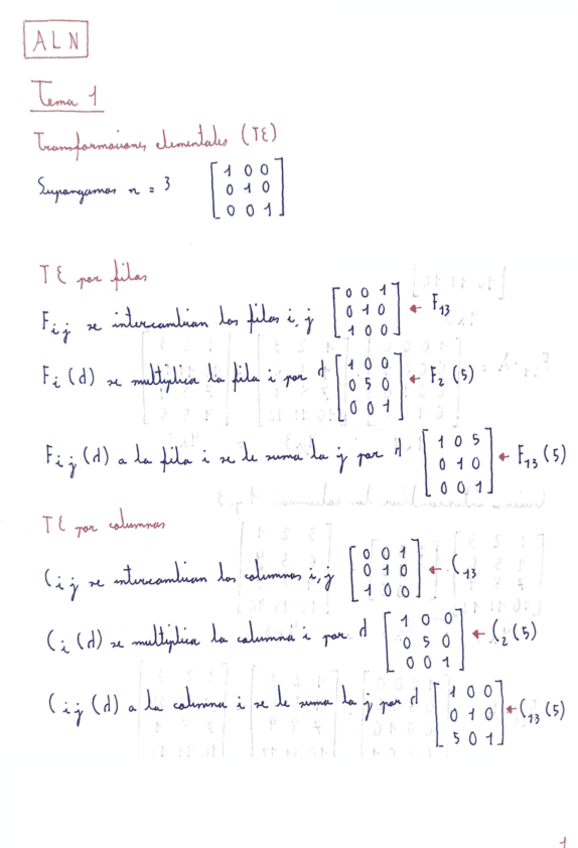 ALN
Tema 1
Transformaciones elementales (TE)
Supongamos n = 3 [1 0 0
0 1 0
0 0 1]
TE por filas
Fij se intercambian las filas i, j [0 0 1
0 1 0
1 0 0] ← F13
Fi (d) se multiplica la fila i por d [1 0 0
0 5 0
0 0 1] ← F2 (5)
Fij (d) a la fila i se le suma la j por d [1 0 5
0 1 0
0 0 1] ← F13 (5)
TE por columnas
Cij se intercambian las columnas i, j [0 0 1
0 1 0
1 0 0] ← C13
Ci (d) se multiplica la columna i por d [1 0 0
0 5 0
0 0 1] ← C2 (5)
Cij (d) a la columna i se le suma la j por d [1 0 0
0 1 0
5 0 1] ← C13 (5)
1